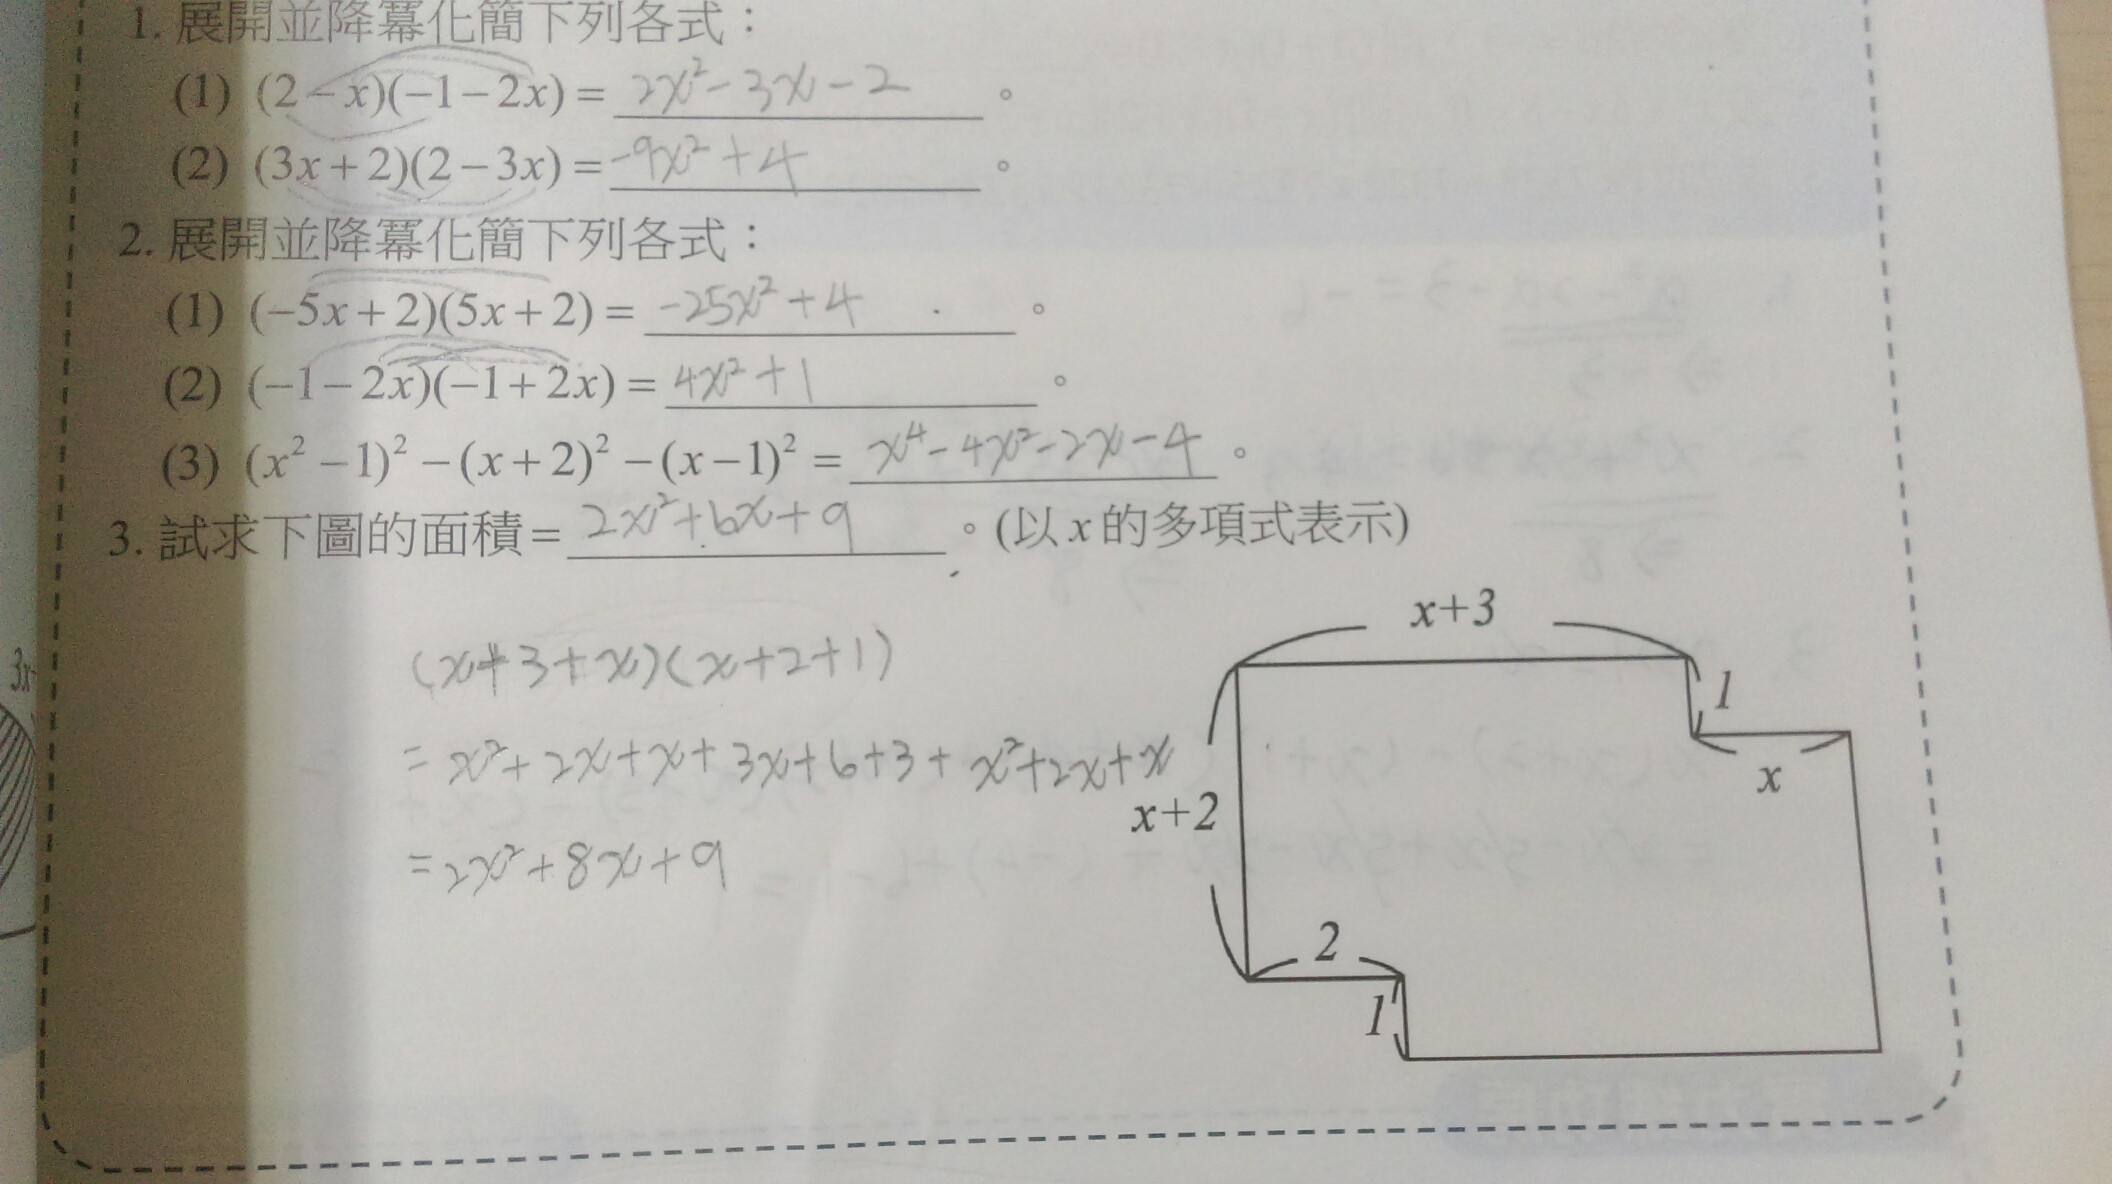 1. 展開並降冪化簡下列各式：
(1) (2－x)(－1－2x)＝2x²－3x－2。
(2) (3x＋2)(2－3x)＝-9x²＋4。
2. 展開並降冪化簡下列各式：
(1) (－5x＋2)(5x＋2)＝-25x²＋4。
(2) (－1－2x)(－1＋2x)＝4x²＋1。
(3) (x²－1)²－(x＋2)²－(x－1)²＝x⁴－4x²－2x－4。
3. 試求下圖的面積＝2x²＋6x＋9。(以x的多項式表示)
x+3
(x+3+x)(x+2+1)
1
= x²+2x+x+3x+6+3+x²+2x+x
x
x+2
=2x²+8x+9
2
1
3x